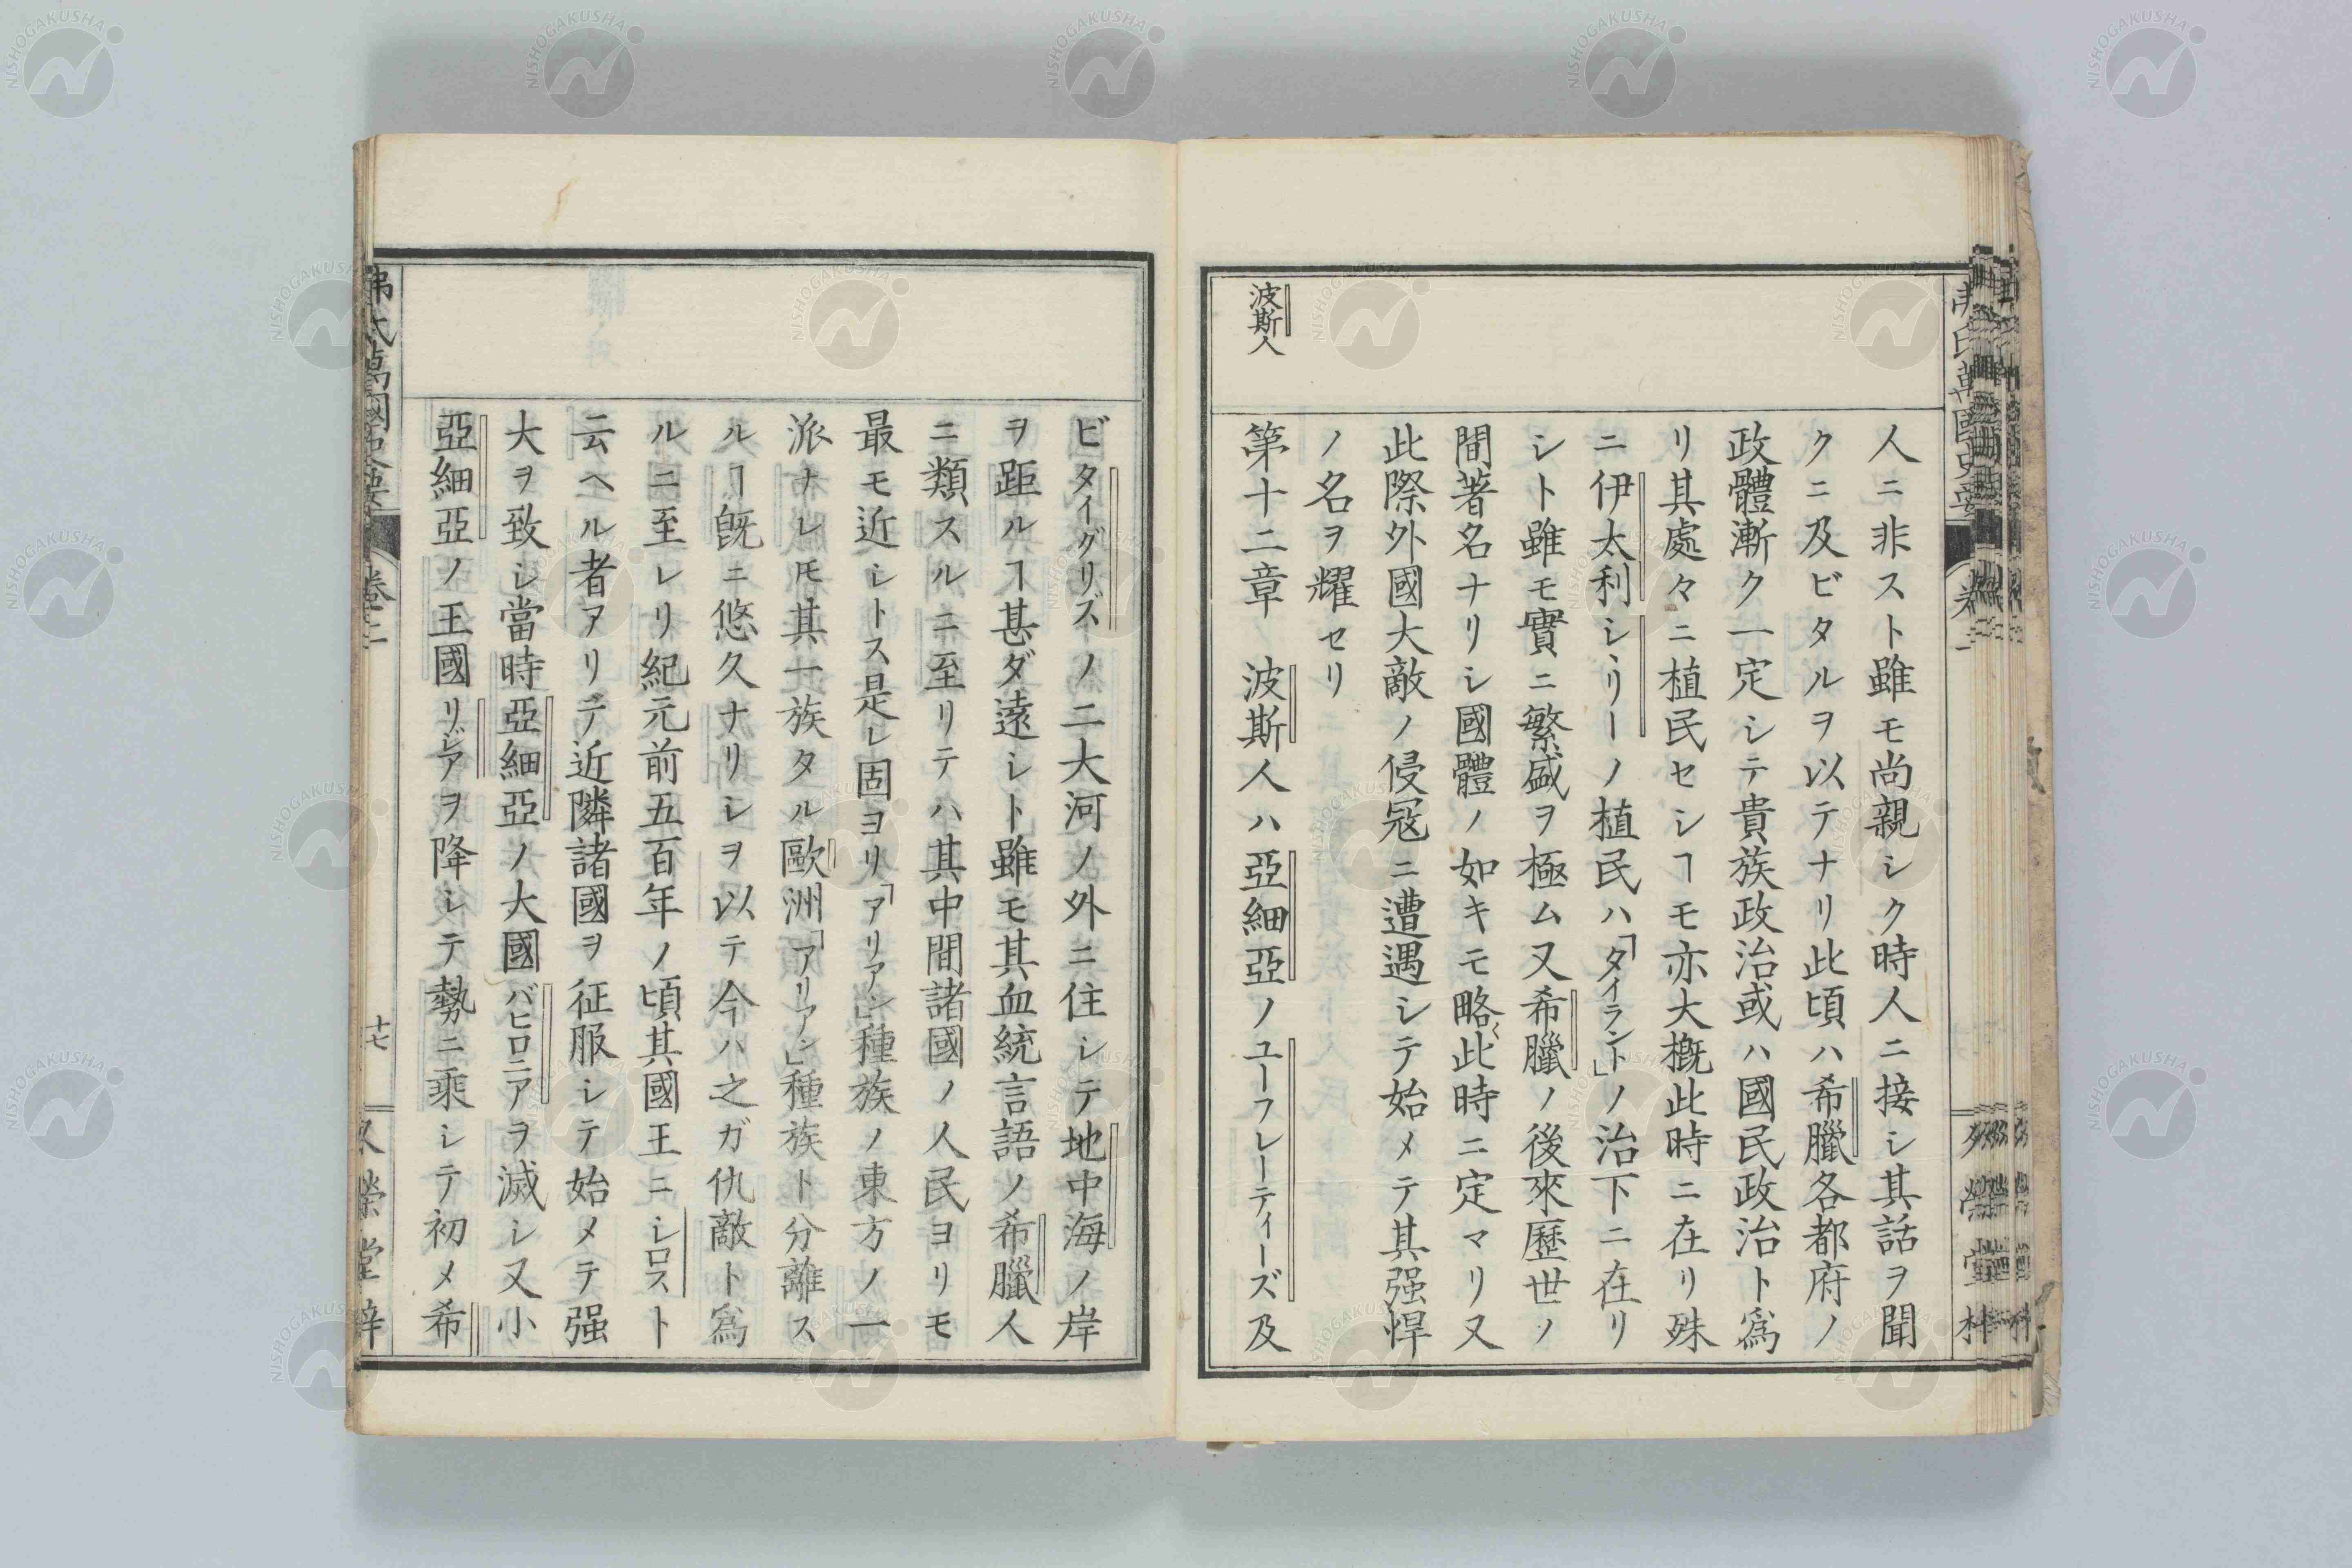 人ニ非スト雖モ尚親シク時人ニ接シ其話ヲ聞
クニ及ビタルヲ以テナリ此頃ハ希臘各都府ノ
政體漸ク一定シテ貴族政治或ハ國民政治ト爲
リ其處々ニ植民セシヿモ亦大概此時ニ在リ殊
ニ伊太利シヽリーノ植民ハ「タイラント」ノ治下ニ在リ
シト雖モ實ニ繁盛ヲ極ム又希臘ノ後來歷世ノ
間著名ナリシ國體ノ如キモ略く此時ニ定マリ又
此際外國大敵ノ侵冦ニ遭遇シテ始メテ其强悍
ノ名ヲ耀セリ
波斯人
第十二章 波斯人ハ亞細亞ノユーフレーティーズ及
ビタイグリズノ二大河ノ外ニ住シテ地中海ノ岸
ヲ距ルヿ甚ダ遠シト雖モ其血統言語ノ希臘人
ニ類スルニ至リテハ其中間諸國ノ人民ヨリモ
最モ近シトス是レ固ヨリ「アリアン」種族ノ東方ノ一
派ナレ𪜈其一族タル歐洲「アリアン」種族ト分離ス
ルヿ旣ニ悠久ナリシヲ以テ今ハ之ガ仇敵ト爲
ルニ至レリ紀元前五百年ノ頃其國王ニシロスト
云ヘル者アリテ近隣諸國ヲ征服シテ始メテ强
大ヲ致シ當時亞細亞ノ大國バビロニアヲ滅シ又小
亞細亞ノ王國リヂアヲ降シテ勢ニ乘シテ初メ希
弗氏萬國史要 卷二 十七 又榮堂梓
NISHOGAKUSHA